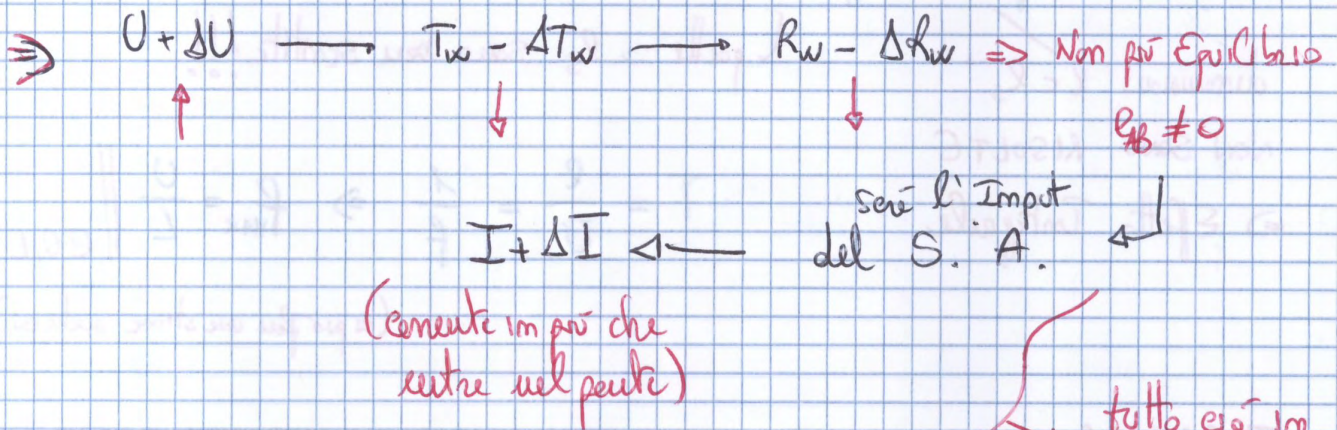 ⇒ U + ΔU → Tw - ΔTw → Rw - ΔRw ⇒ Non più Equilibrio
↑ ↓ ↓ e_AB ≠ 0
sarà l'Imput
I + ΔI ← del S. A.
(corrente in più che
entra nel ponte)
tutto ciò in